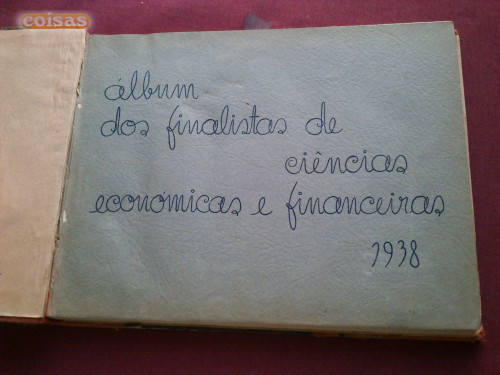 coisas
álbum
dos finalistas de
ciências
económicas e financeiras
1938